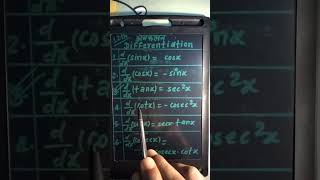 12th अवकलन
Differentiation
1. d/dx (sinx) = cosx
2. d/dx (cosx) = -sinx
3. d/dx (tanx) = sec²x
4. d/dx (cotx) = -cosec²x
5. d/dx (secx) = secx·tanx
6. d/dx (cosecx) =
-cosecx·cotx